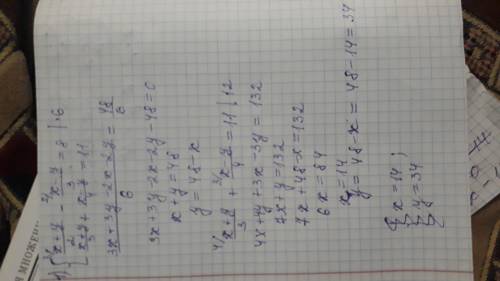 1) { ³/ x+y/2 - ²/ x-y/3 = 8 | ·6
{ x+y/3 + x-y/4 = 11
3x+3y-2x-2y/6 = 48/6
3x+3y-2x-2y-48=0
x+y=48
y=48-x
⁴/ x+y/3 + ³/ x-y/4 = 11 | 12
4x+4y+3x-3y=132
7x+y=132
7x+48-x=132
6x=84
x=14
y=48-x=48-14=34
{ x=14
{ y=34